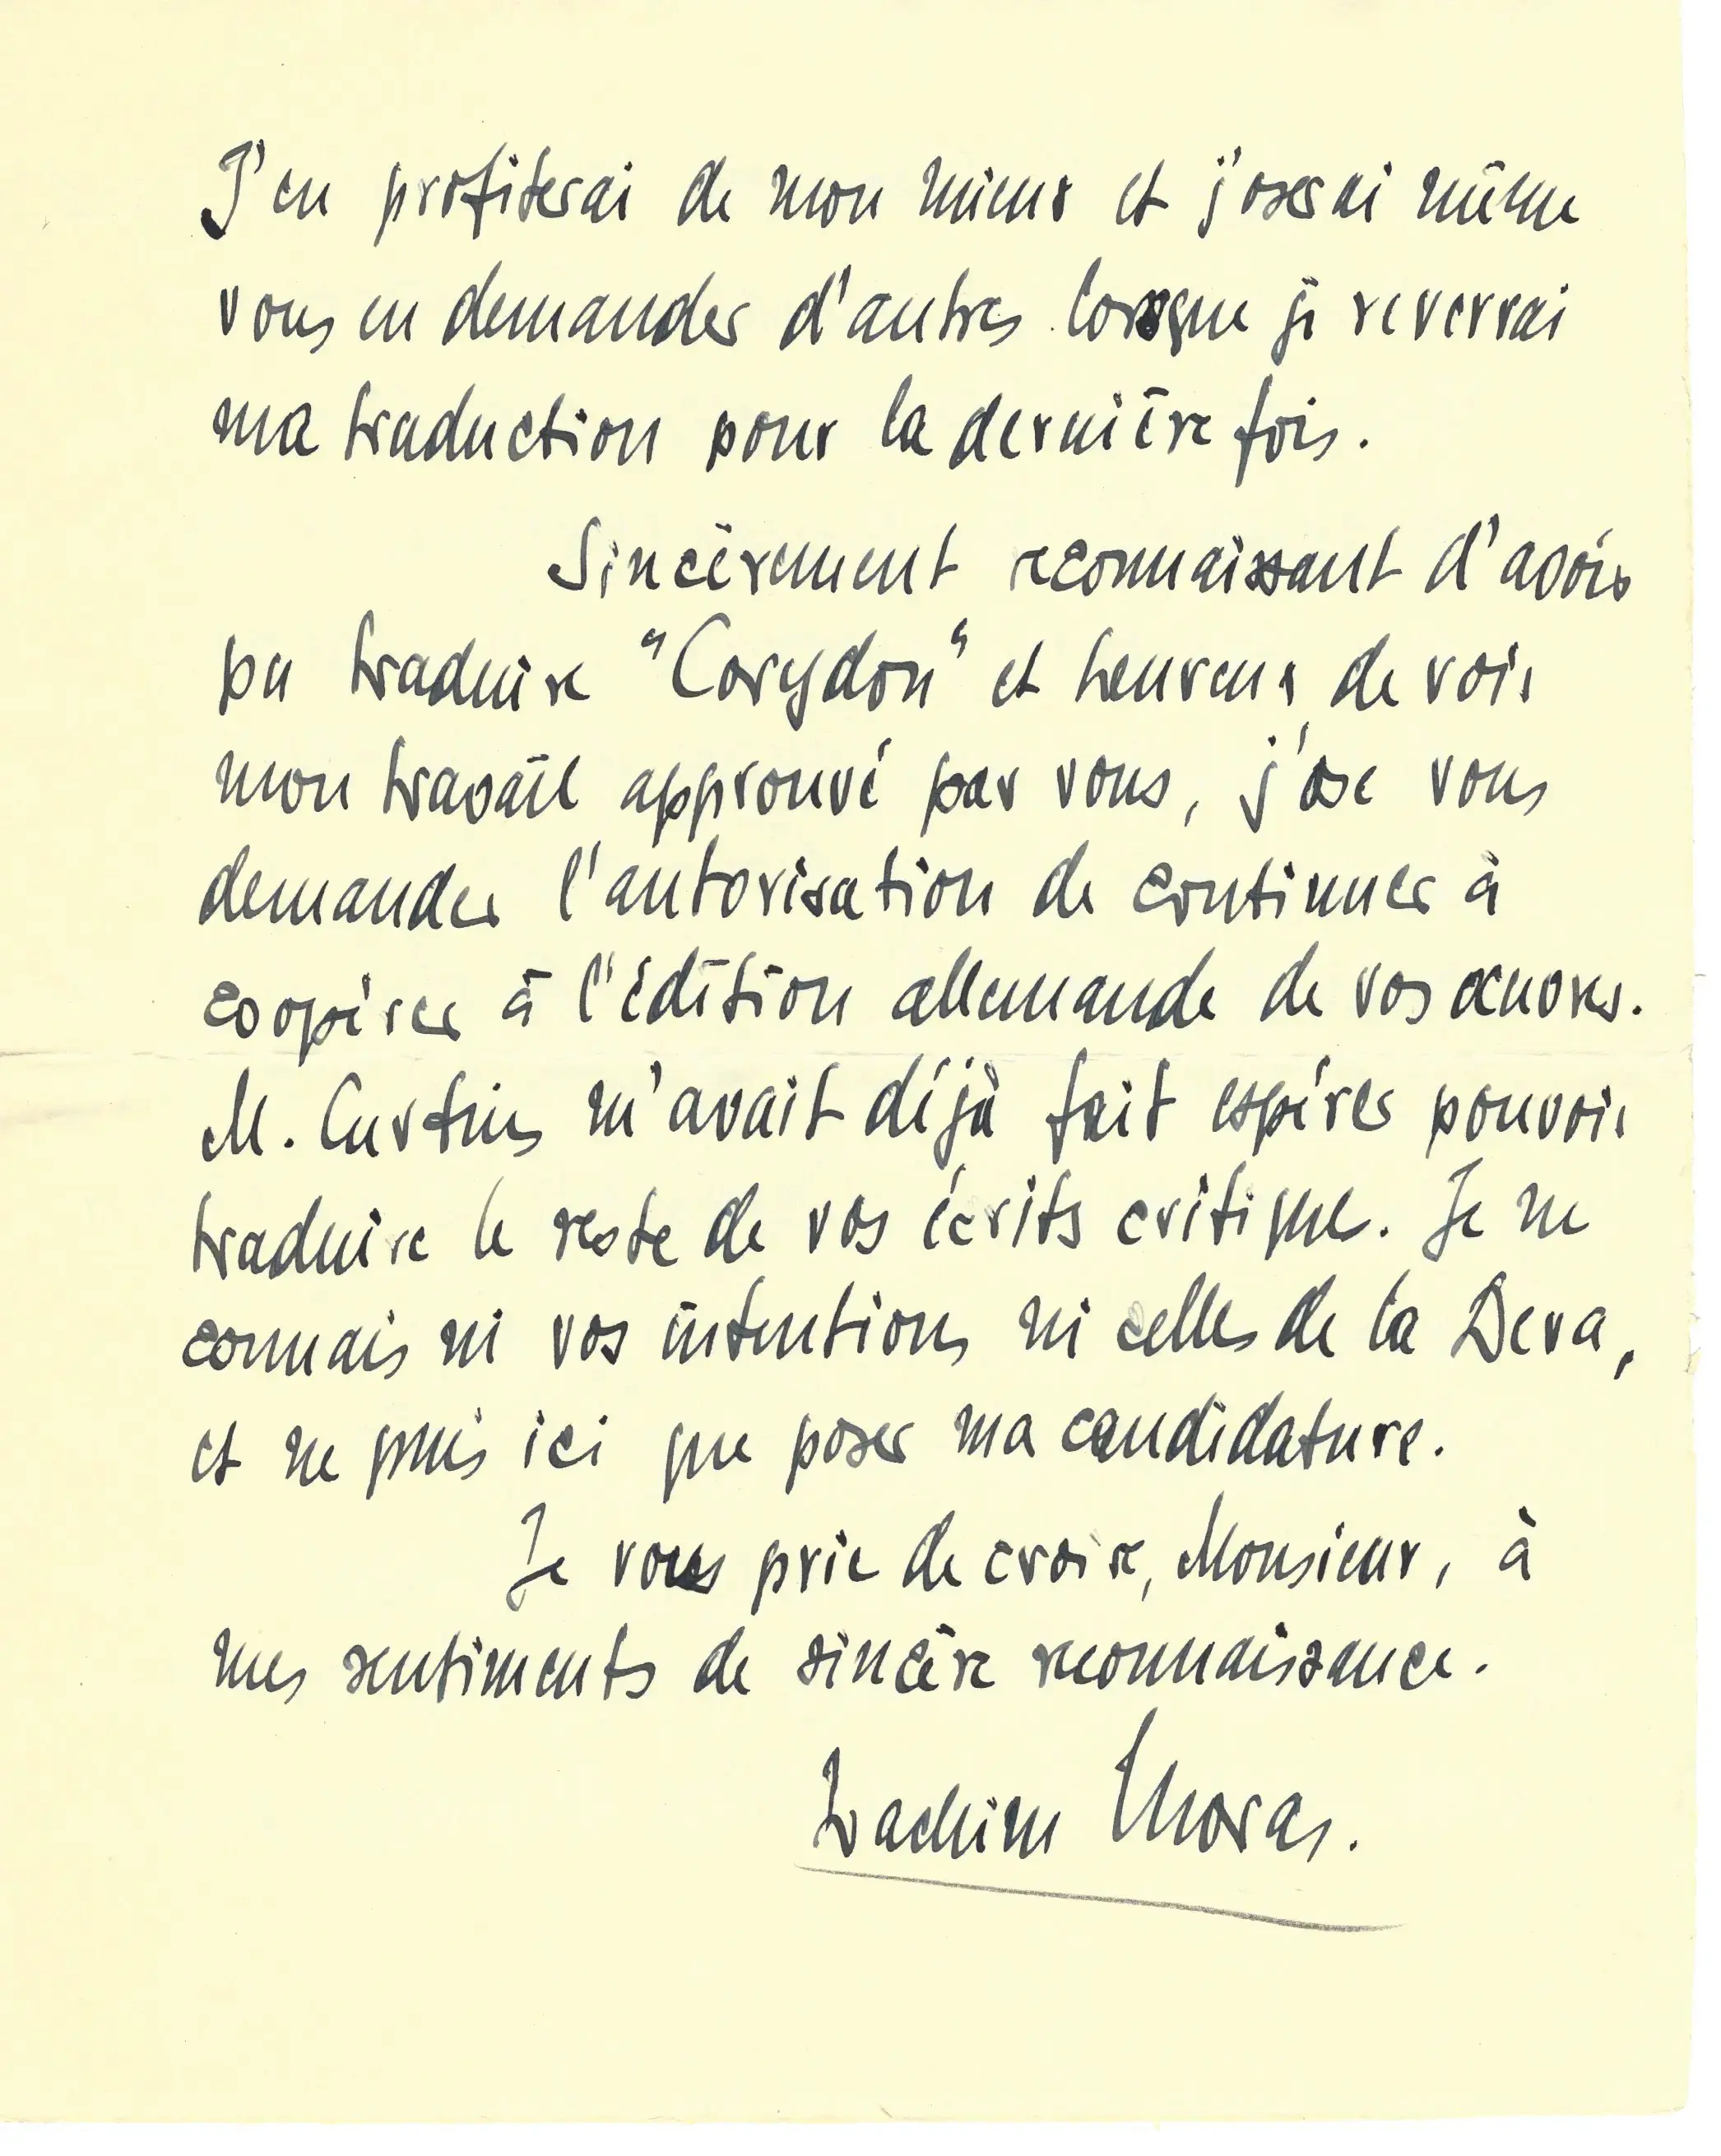 J'en profiterai de mon mieux et j'oserai même
vous en demander d'autres lorsque je reverrai
ma traduction pour la dernière fois.
Sincèrement reconnaissant d'avoir
pu traduire "Corydon" et heureux de voir
mon travail approuvé par vous, j'ose vous
demander l'autorisation de continuer à
coopérer à l'édition allemande de vos œuvres.
M. Curtius m'avait déjà fait espérer pouvoir
traduire le reste de vos écrits critiques. Je ne
connais ni vos intentions ni celles de la Deva,
et ne puis ici que poser ma candidature.
Je vous prie de croire, Monsieur, à
mes sentiments de sincère reconnaissance.
Joachim Moras.